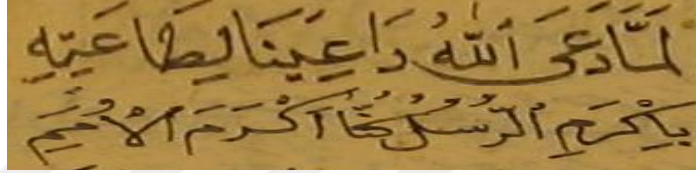 لَمَّا دَعَى اللّٰهُ دَاعِينَا لِطَاعَتِهِ
بِأَكْرَمِ الرُّسُلِ كُنَّا أَكْرَمَ الْأُمَمِ